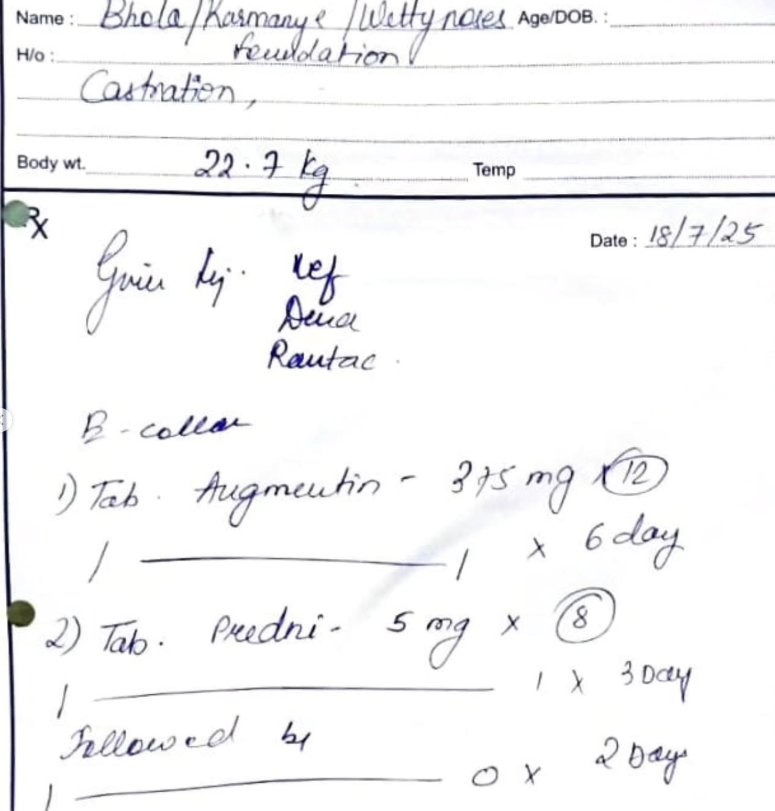 Name : Bhola/Karmanye/Wettynoses Age/DOB. :
foundation
H/o :
Castration,
Body wt. 22.7 kg Temp
Rx
Date : 18/7/25
Inj. 
Rantac
E-collar
1) Tab. Augmentin - 375 mg x 12
1 ——— 1 x 6 day
2) Tab. Predni - 5 mg x 8
1 ——— 1 x 3 Day
Followed by
1 ——— 0 x 2 Days